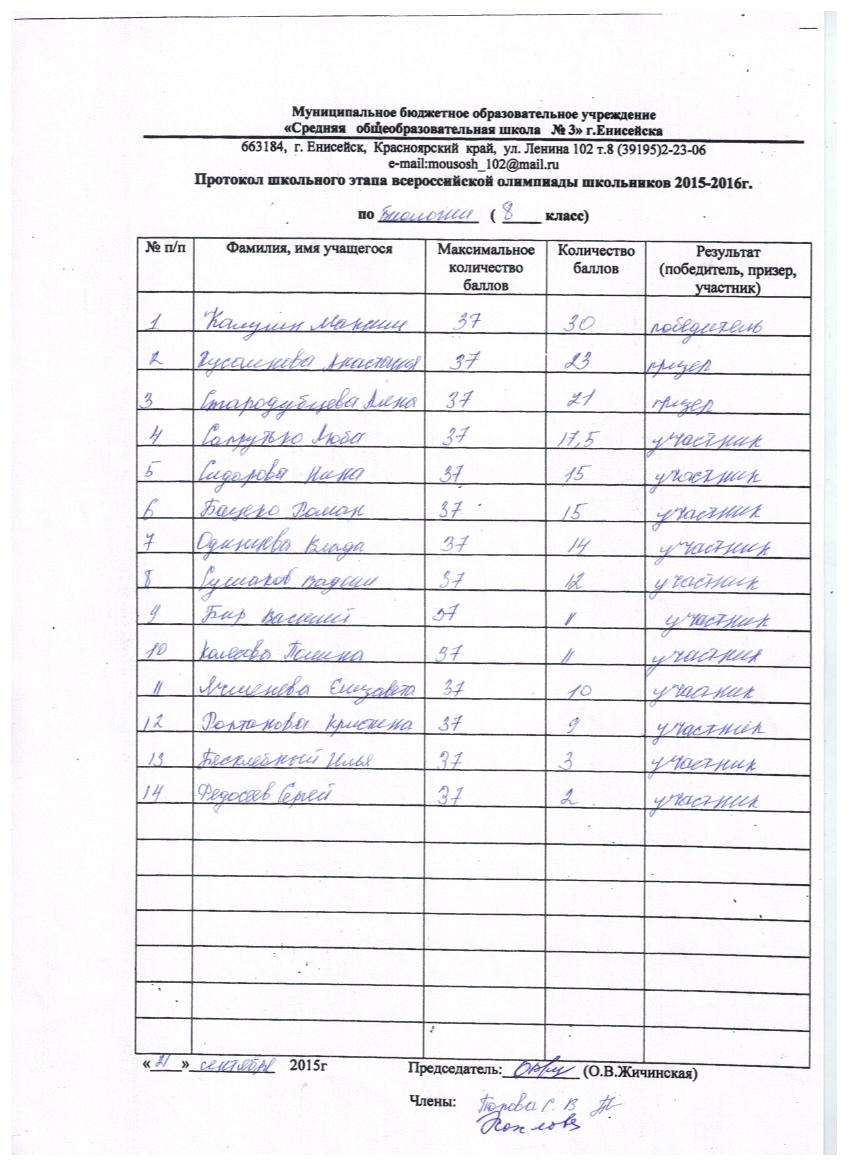 Муниципальное бюджетное образовательное учреждение
«Средняя общеобразовательная школа № 3» г.Енисейска
663184, г. Енисейск, Красноярский край, ул. Ленина 102 т.8 (39195)2-23-06
e-mail:mousosh_102@mail.ru
Протокол школьного этапа всероссийской олимпиады школьников 2015-2016г.
по биологии ( 8 класс)
№ п/п Фамилия, имя учащегося Максимальное количество баллов Количество баллов Результат (победитель, призер, участник)
1 Калушин Максим 37 30 победитель
2 Хусаинова Анастасия 37 23 призер
3 Стародубцева Алена 37 21 призер
4 Люба 37 17,5 участник
5 Сидорова Нина 37 15 участник
6 Бацеко Роман 37 15 участник
7 Одинцева Влада 37 14 участник
8 Сушаков Вадим 37 12 участник
9 Бир Василий 37 11 участник
10 Полина 37 11 участник
11 Ячменева Елизавета 37 10 участник
12 Кристина 37 9 участник
13 Бесклебный Илья 37 3 участник
14 Федосеев Сергей 37 2 участник
« 21 » сентября 2015г Председатель: (О.В.Жичинская)
Члены: С. В